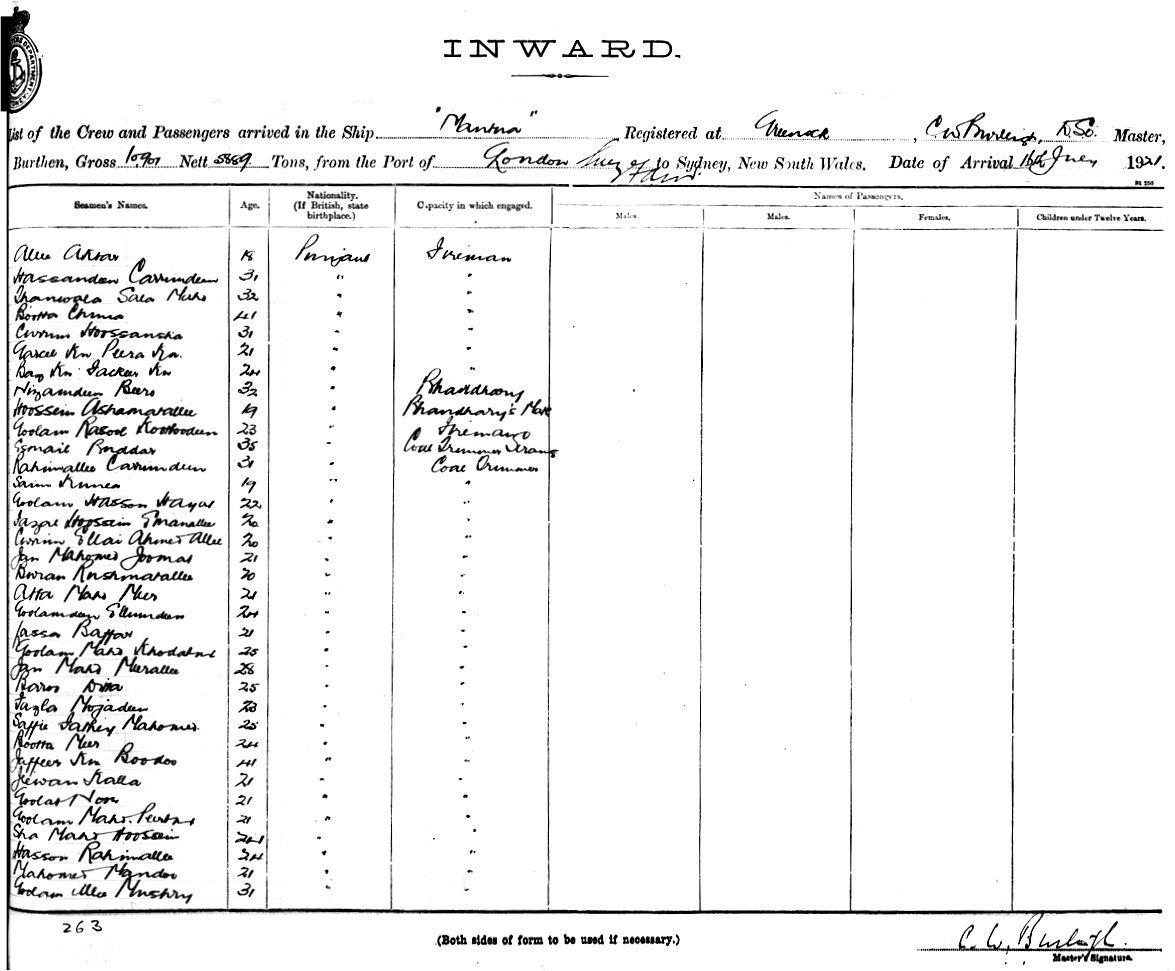 INWARD.
List of the Crew and Passengers arrived in the Ship "Mantua" Registered at Greenock, C W Burleigh, D.S.O. Master,
Burthen, Gross 10901 Nett 5889 Tons, from the Port of London Suez & to Sydney, New South Wales. Date of Arrival 16th July 1921.
Seamen's Names. Age. Nationality. (If British, state birthplace.) Capacity in which engaged. Names of Passengers.
Males. Males. Females. Children under Twelve Years.
Allee Akbar 18 Punjaub Fireman
Hassandeen Carrumdeen 31 " "
Sala Mahd 32 " "
Bootta 41 " "
Currim 31 " "
Kn Peera Kn. 21 " "
Baz Kn Kn 24 " "
Nizamdeen Beers 32 " Bhandhary
Hoossein Ashamatallee 19 " Bhandhary's Mate
Goolam Rasool 23 " Fireman
Esmail Buddar 35 " Coal Trimmer Serang
Rahimallee Carrumdeen 31 " Coal Trimmer
19 " "
Goolam Hasson Hayat 22 " "
Hoossein Emanallee 20 " "
Currim Ellai Ahmed Allee 20 " "
Jan Mahomed Joomas 21 " "
20 " "
Atta Mahd Meer 21 " "
Goolamdeen Ellumdeen 24 " "
21 " "
Goolam Mahd 25 " "
Jan Mahd Meerallee 28 " "
Ditta 25 " "
Fazla Mojadeen 23 " "
Saffie Mahomed. 25 " "
Bootta Meer 24 " "
Jaffeer Kn Boodoo 41 " "
Jiewan Kalla 21 " "
Noor 21 " "
Goolam Mahd. 21 " "
Sha Mahd Hoossein 24 " "
Hasson Rahimallee 24 " "
Mahomed Mandoo 21 " "
Goolam Allee 31 " "
263
(Both sides of form to be used if necessary.)
C. W. Burleigh.
Master's Signature.